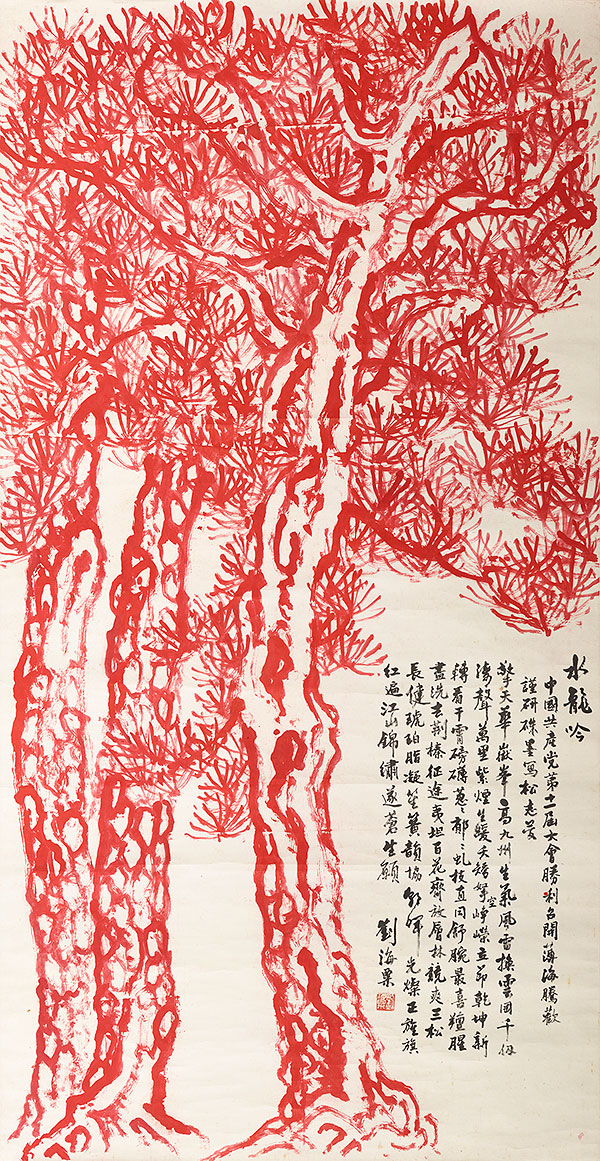 水龍吟
中國共產党第十一屆大會勝利召開薄海騰歡
謹研硃墨寫松志慶
擎天華嶽峯高九州生氣風雷換雲囷千仞
濤聲萬里紫煙生煖夭矯拏空崢嶸立節乾坤新
轉看干霄磅礴蔥蔥郁郁虬枝直同舒腕最喜羶腥
盡洗去荆榛征途夷坦百花齊放層林競爽三松
長健琥珀脂凝笙簧韻協 光燦正旌旗
红遍江山錦繡遂蒼生願
劉海粟